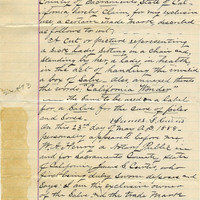 County of Sacramento, State of Cal-
ifornia hereby claims the exclusive
use, a certain Trade Mark, described
as follows to wit:
"A Cut or picture representing
a sick lady sitting in a chair and
standing by her a lady in health,
in the act of handing the invalid
a box of Salve. Also, arranged thereto
the words, "California Wonder"
The same to be used on a label
for a Salve for the Cure of Piles
and Sores.
James S. Count
On this 23d day of May A.D. 1888,
personally appeared before me
W. E. a Notary Public in
and for Sacramento County, State
California, James S. Count, who
first being duly sworn deposes and
says: I am the exclusive owner
of the Salve and the Trade Mark